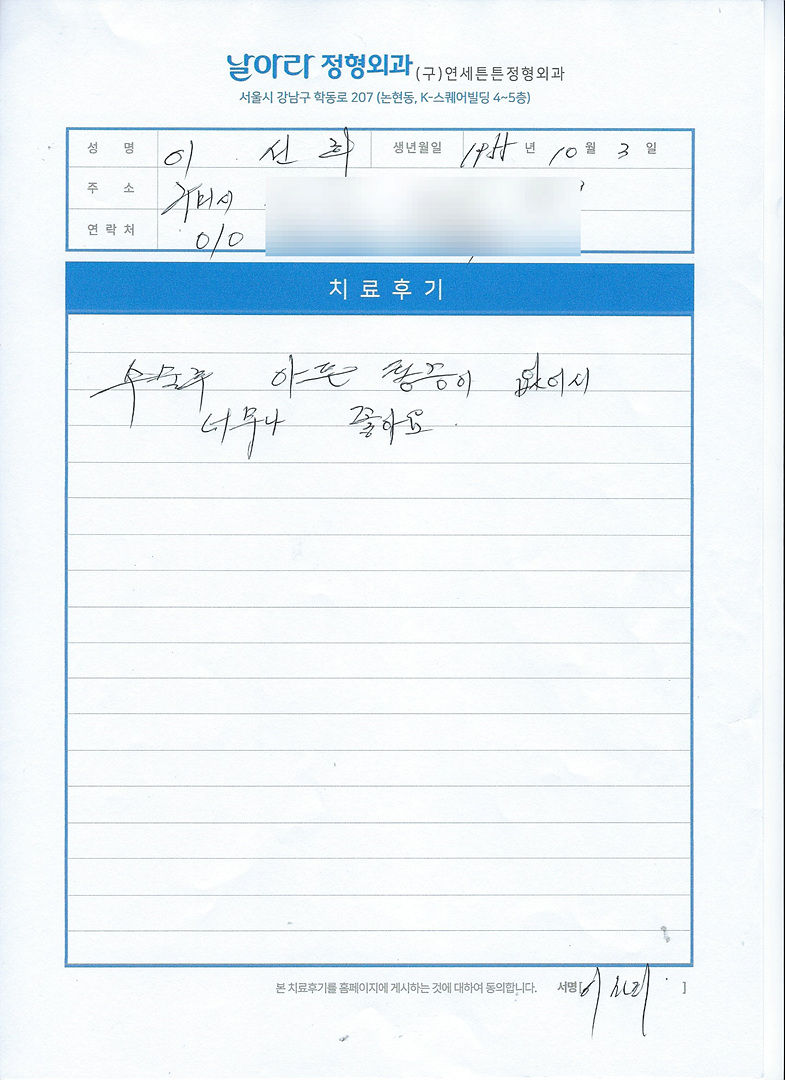 날아라 정형외과 (구)연세튼튼정형외과
서울시 강남구 학동로 207 (논현동, K-스퀘어빌딩 4~5층)
성 명 이 선 희 생년월일 1955 년 10 월 3 일
주 소 구미시
연락처 010
치료후기
수술후 아픈 통증이 없어서
너무나 좋아요.
본 치료후기를 홈페이지에 게시하는 것에 대하여 동의합니다. 서명[이 ]